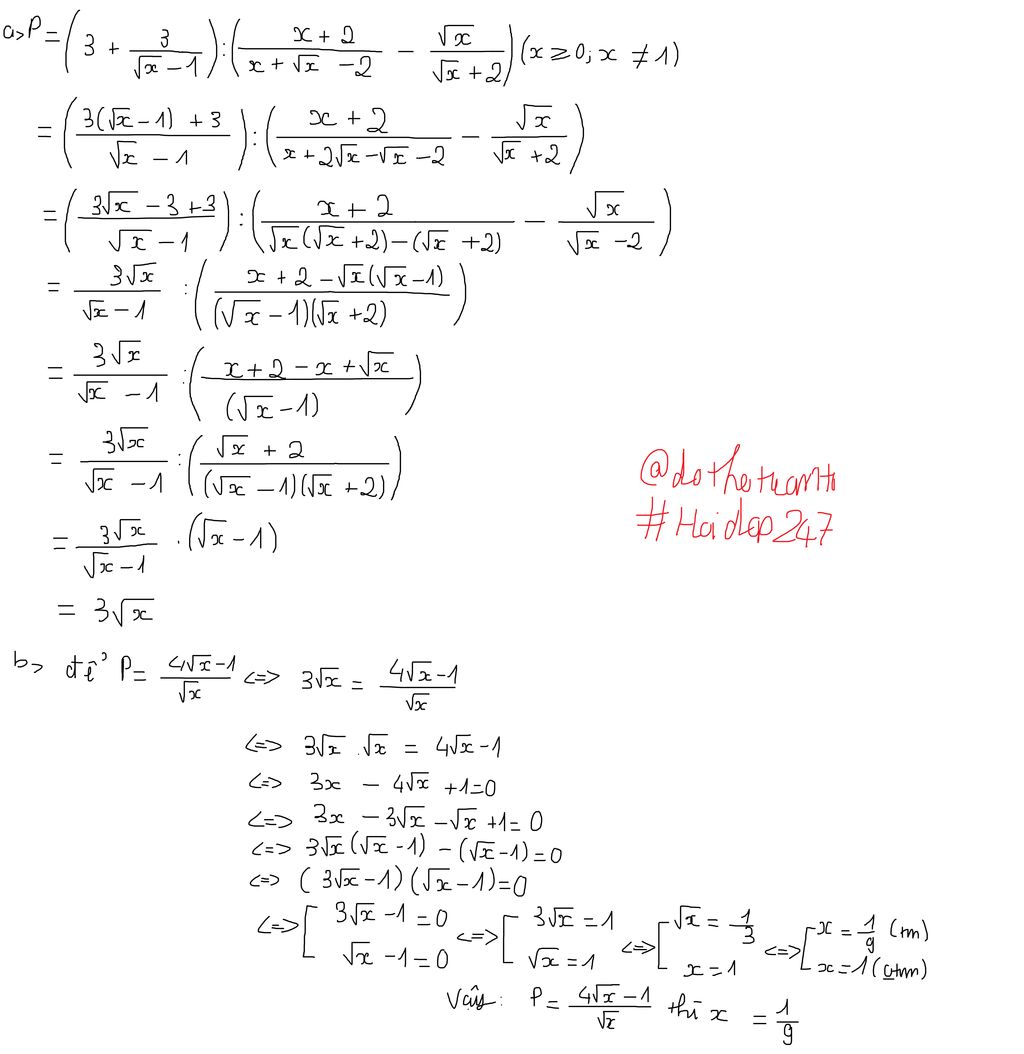 a> P = (3 + 3/(√x − 1)) : ((x + 2)/(x + √x − 2) − √x/(√x + 2)) (x ≥ 0; x ≠ 1)
= ((3(√x − 1) + 3)/(√x − 1)) : ((x + 2)/(x + 2√x − √x − 2) − √x/(√x + 2))
= ((3√x − 3 + 3)/(√x − 1)) : ((x + 2)/(√x(√x + 2) − (√x + 2)) − √x/(√x − 2))
= 3√x/(√x − 1) : ((x + 2 − √x(√x − 1))/((√x − 1)(√x + 2)))
= 3√x/(√x − 1) : ((x + 2 − x + √x)/(√x − 1))
= 3√x/(√x − 1) : ((√x + 2)/((√x − 1)(√x + 2)))
= 3√x/(√x − 1) . (√x − 1)
= 3√x
@dothetuanti
#Hoidap247
b> để P = (4√x − 1)/√x <=> 3√x = (4√x − 1)/√x
<=> 3√x . √x = 4√x − 1
<=> 3x − 4√x + 1 = 0
<=> 3x − 3√x − √x + 1 = 0
<=> 3√x(√x − 1) − (√x − 1) = 0
<=> (3√x − 1)(√x − 1) = 0
<=> [ 3√x − 1 = 0 <=> [ 3√x = 1 <=> [ √x = 1/3 <=> [ x = 1/9 (tm)
√x − 1 = 0 √x = 1 x = 1 x = 1 (
Vậy: P = (4√x − 1)/√x thì x = 1/9